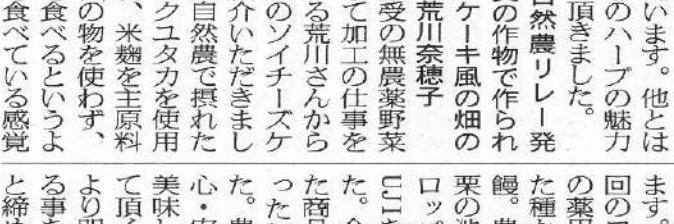 います。他とは
のハーブの魅力
頂きました。
自然農リレー発
の作物で作られ
ケーキ風の畑の
荒川奈穂子
受の無農薬野菜
て加工の仕事を
る荒川さんから
のソイチーズケ
介いただきまし
自然農で摂れた
クユタカを使用
、米麹を主原料
の物を使わず、
食べるというよ
食べている感覚
ます。
回の
の薬
た種
饅。
栗の
ロップ
UJI
た。
た商品
った
た。
心・安
美味し
て頂く
より明
る事
と締